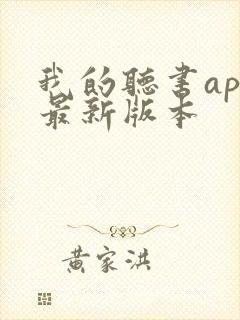 我的聽書ap
最新版本
黄家洪